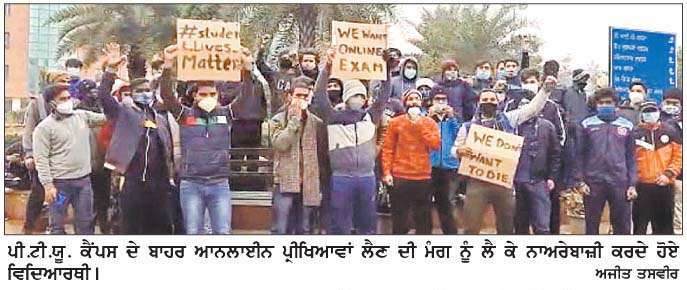 #student
Lives
Matter
WE WANT
ONLINE
EXAM
WE DON'T
WANT TO
DIE
ਪੀ.ਟੀ.ਯੂ. ਕੈਂਪਸ ਦੇ ਬਾਹਰ ਆਨਲਾਈਨ ਪ੍ਰੀਖਿਆਵਾਂ ਲੈਣ ਦੀ ਮੰਗ ਨੂੰ ਲੈ ਕੇ ਨਾਅਰੇਬਾਜ਼ੀ ਕਰਦੇ ਹੋਏ
ਵਿਦਿਆਰਥੀ। ਅਜੀਤ ਤਸਵੀਰ